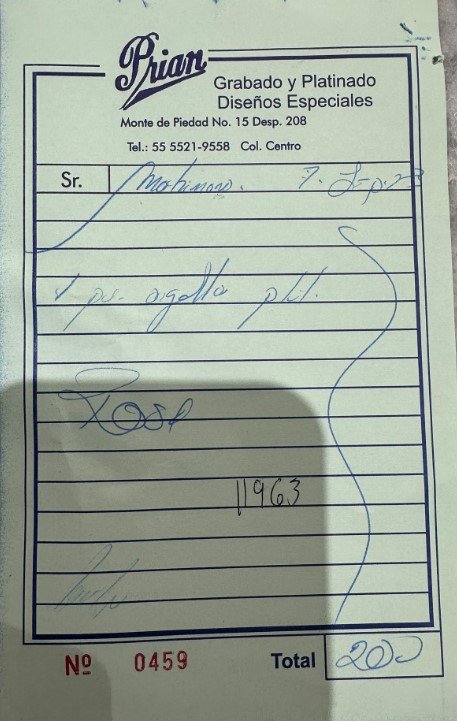 Prian
Grabado y Platinado
Diseños Especiales
Monte de Piedad No. 15 Desp. 208
Tel.: 55 5521-9558 Col. Centro
Sr.
7. Sep. 23
1 par argolla plt.
Rose
11963
Nº 0459 Total 200